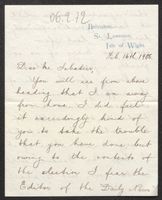 06.2.12
St. Lawrence,
Isle of Wight.
Feb 16th 1906
Dear M. Sabatier,
You will see from above
heading that I am away
from home. I did feel
it exceedingly kind of
you to take the trouble
that you have done but
owing to the contests of
the election I fear the
Editor of the Daily News